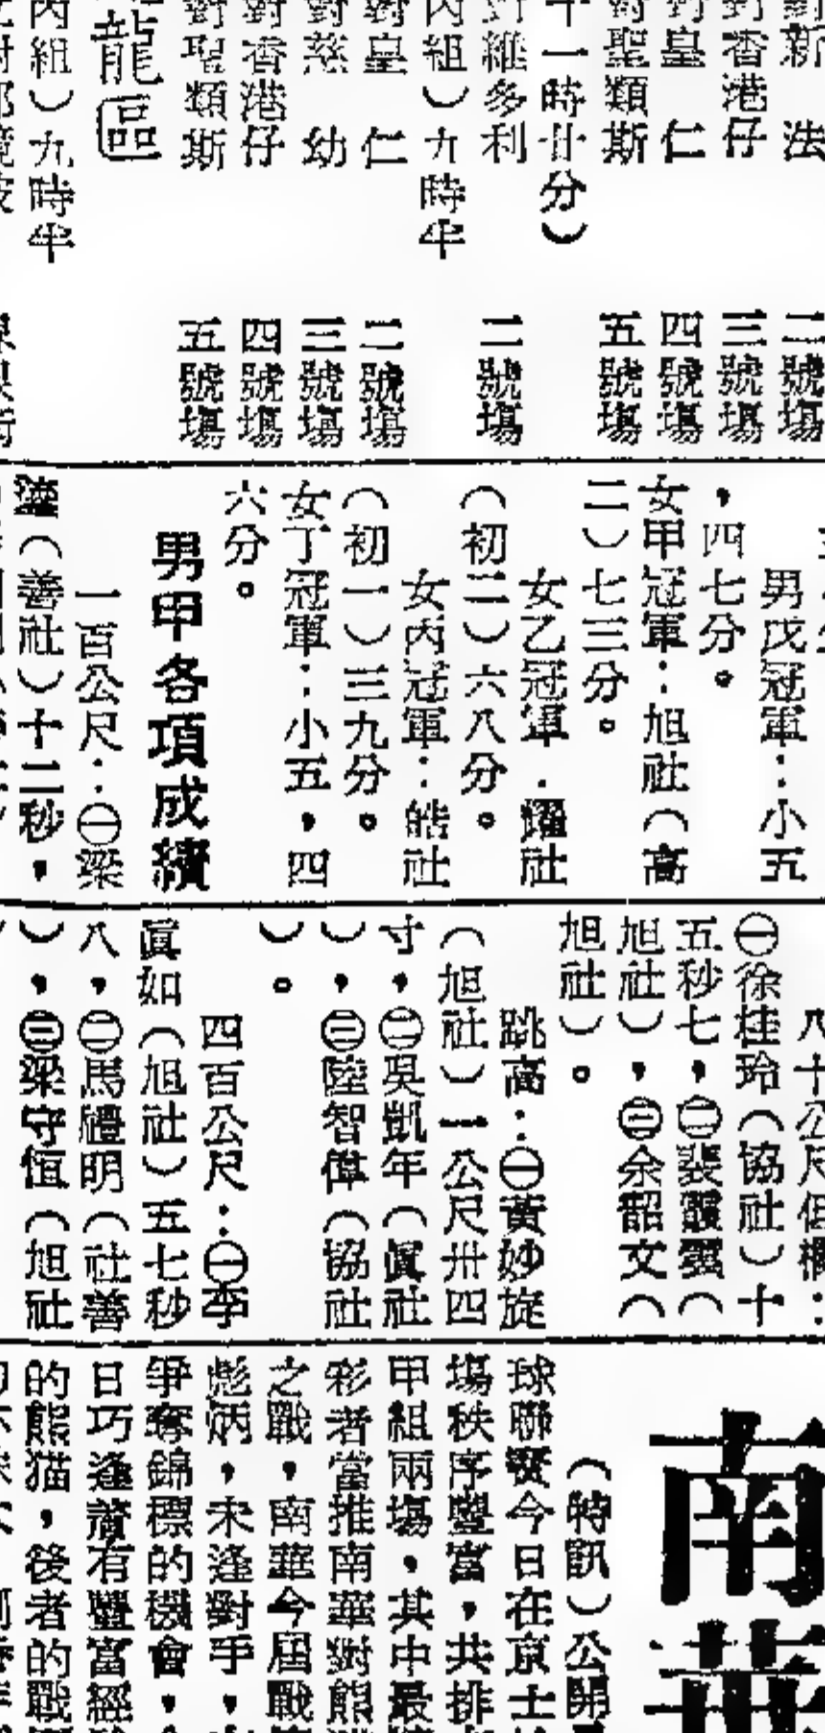 法
對香港仔
三號場
對皇仁
四號場
對聖類斯
五號場
十一時廿分）
對維多利
二號場
丙組）九時半
對皇仁
二號場
對慈幼
三號場
對香港仔
四號場
對聖類斯
五號場
龍區
丙組）九時半
男戊冠軍：小五
，四七分。
女甲冠軍：旭社（高
二）七三分。
女乙冠軍．耀社
（初二）六八分。
女丙冠軍：皓社
（初一）三九分。
女丁冠軍：小五，四
六分。
男甲各項成績
一百公尺：㊀梁
（善社）十二秒，
八十公尺低欄：
㊀徐桂玲（協社）十
五秒七，㊁裴靄雲（
旭社），㊂余韶文（
旭社）。
跳高：㊀黃妙旋
（旭社）一公尺卅四
寸，㊁吳凱年（眞社
），㊂陸智偉（協社
）。
四百公尺：㊀李
眞如（旭社）五七秒
八，㊁馬禮明（社善
），㊂梁守恒（旭社
南華
（特訊）公開
球聯賽今日在京士
場秩序豐富，共排
甲組兩場，其中最
彩者當推南華對熊
之戰，南華今屆戰
彪炳，未逢對手，
爭奪錦標的機會，
日巧逢着有豐富經
的熊猫，後者的戰